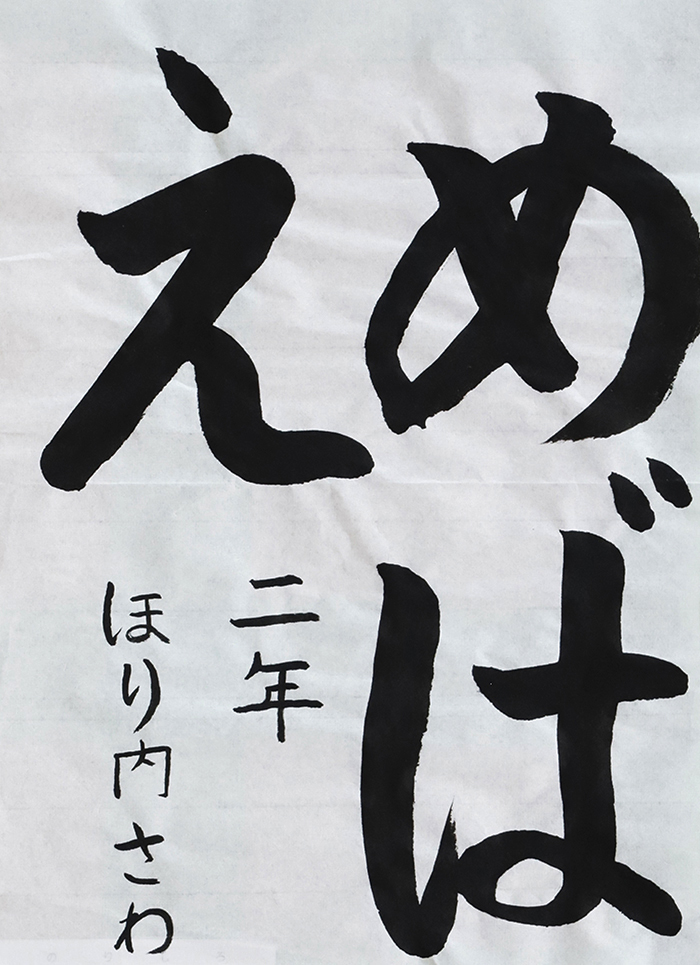 めば
え
二年
ほり内さわ